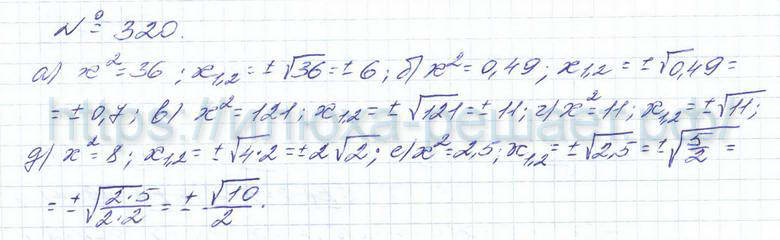 № 320.
а) x² = 36 ; x₁,₂ = ± √36 = ± 6 ; б) x² = 0,49 ; x₁,₂ = ± √0,49 =
= ± 0,7 ; в) x² = 121 ; x₁,₂ = ± √121 = ± 11 ; г) x² = 11 ; x₁,₂ = ± √11 ;
д) x² = 8 ; x₁,₂ = ± √4·2 = ± 2√2 ; е) x² = 2,5 ; x₁,₂ = ± √2,5 = ± √5/2 =
= ± √(2·5)/(2·2) = ± √10/2 .